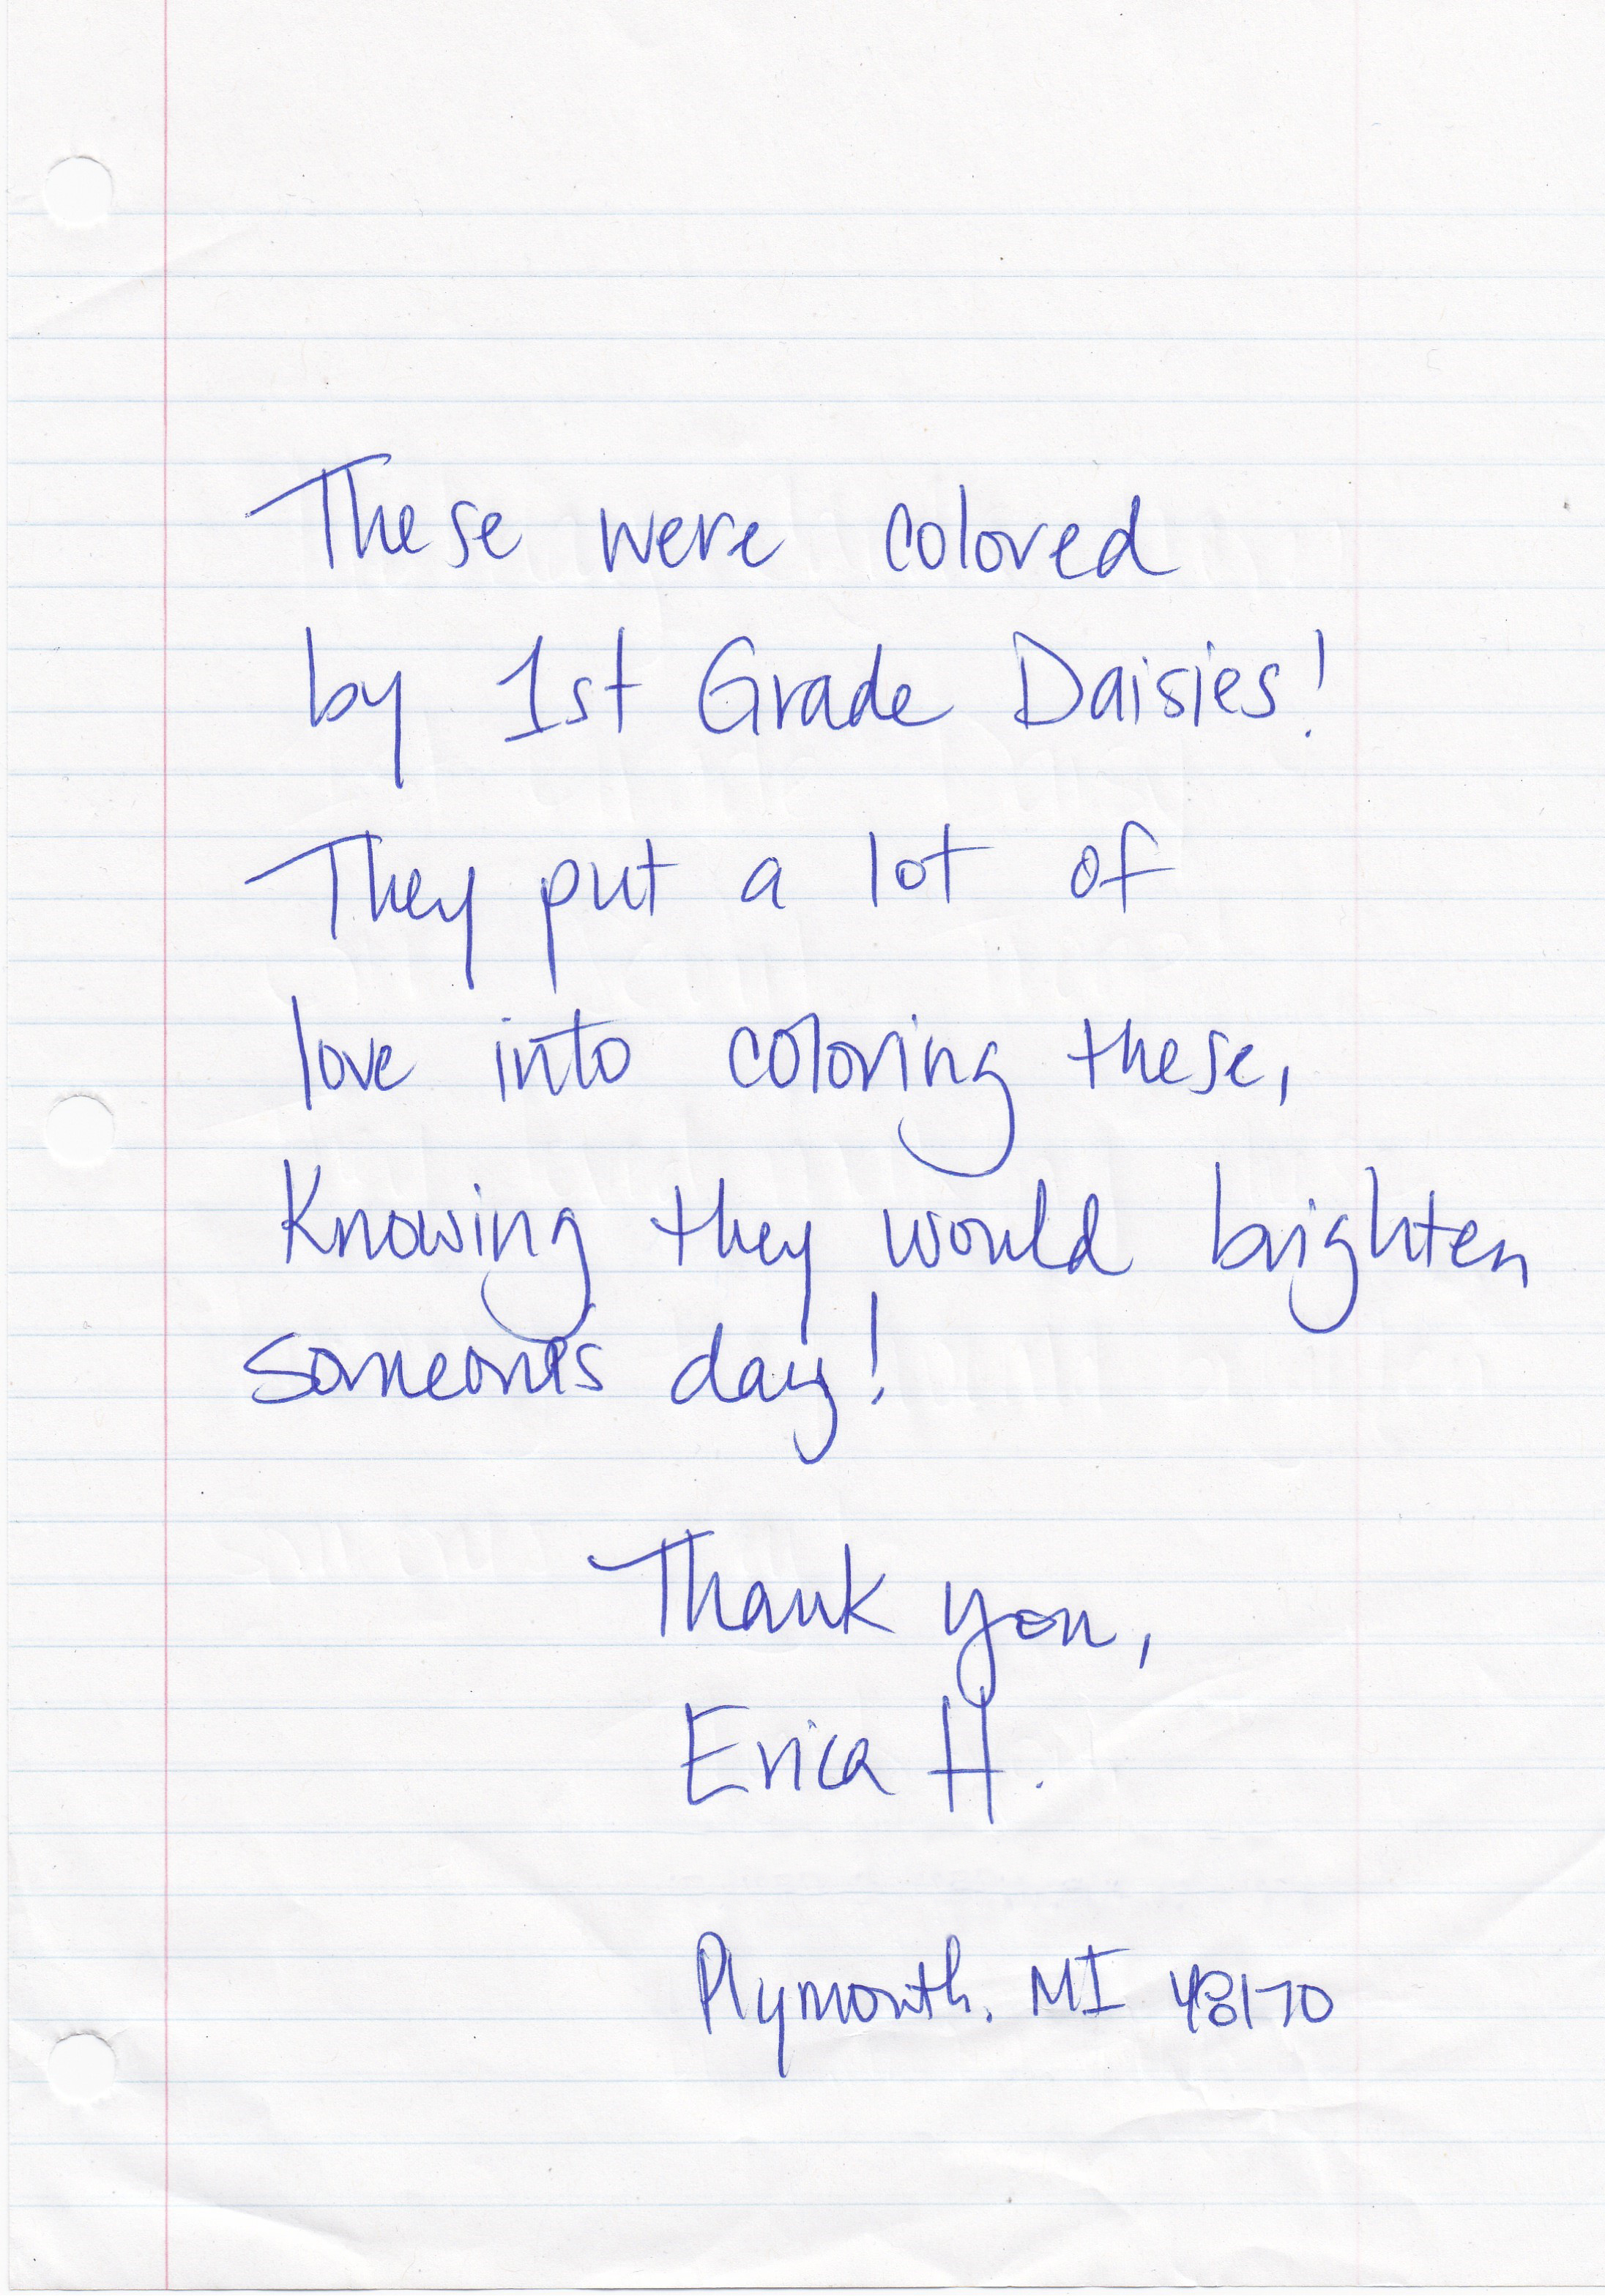 These were colored
by 1st Grade Daisies!
They put a lot of
love into coloring these,
Knowing they would brighten
someones day!
Thank you,
Erica H.
Plymouth, MI 48170